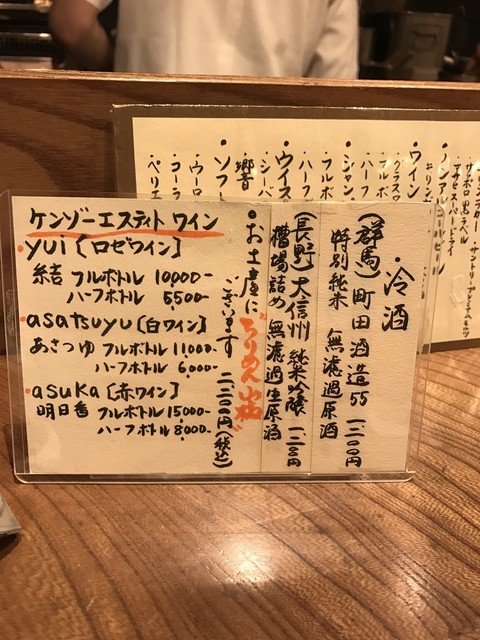 ・冷酒
(群馬) 町田酒造55 一二〇〇円
特別純米 無濾過原酒
(長野) 大信州 純米吟醸 一二〇〇円
槽場詰め 無濾過生原酒
・お土産にちりめん山椒
ございます 二、二〇〇円(税込)
ケンゾーエスティト ワイン
・yui〔ロゼワイン〕
結 フルボトル 10,000-
ハーフボトル 5500-
・asatsuyu〔白ワイン〕
あさつゆ フルボトル 11,000-
ハーフボトル 6,000-
・asuka〔赤ワイン〕
明日香 フルボトル 15000-
ハーフボトル 8,000-
サントリープレミアムモルツ
サッポロ黒ラベル
アサヒスーパードライ
・ノンアルコールビール
キリン
・ワイン
グラスワ
フルボ
ハーフ
・シャン
フルボ
ハーフ
・ウイス
シーバ
響
・ソフ
ウーロ
コーラ
ペリエ